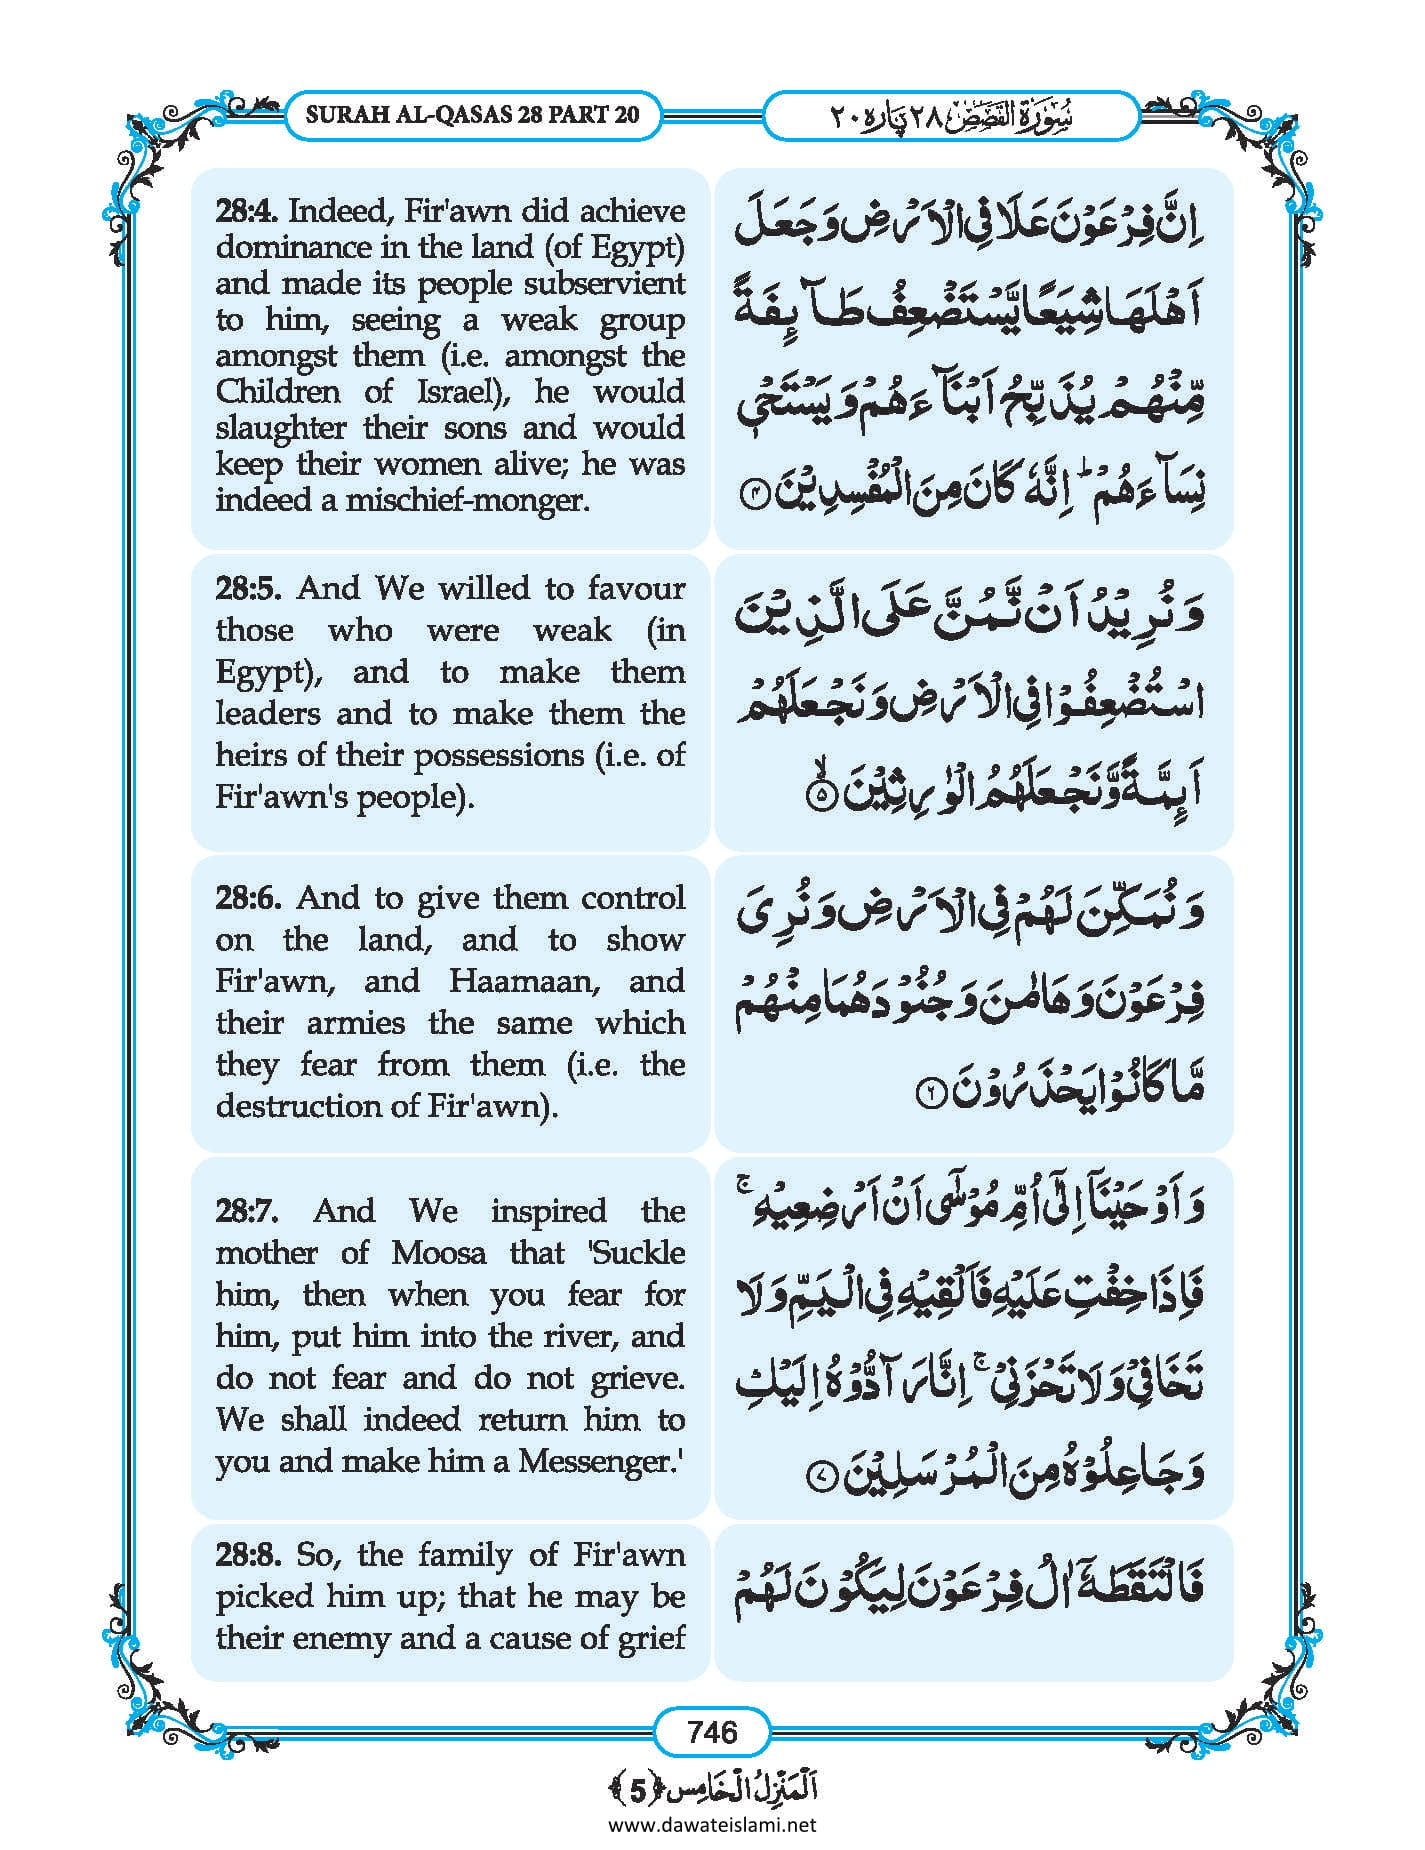 SURAH AL-QASAS 28 PART 20
سُوْرَةُ الْقَصَص ٢٨ پاره ٢٠
28:4. Indeed, Fir'awn did achieve
dominance in the land (of Egypt)
and made its people subservient
to him, seeing a weak group
amongst them (i.e. amongst the
Children of Israel), he would
slaughter their sons and would
keep their women alive; he was
indeed a mischief-monger.
اِنَّ فِرْعَوْنَ عَلَا فِى الْاَرْضِ وَ جَعَلَ
اَهْلَهَا شِیَعًا یَّسْتَضْعِفُ طَآىٕفَةً
مِّنْهُمْ یُذَبِّحُ اَبْنَآءَهُمْ وَ یَسْتَحْیٖ
نِسَآءَهُمْؕ اِنَّهٗ كَانَ مِنَ الْمُفْسِدِیْنَ ۴
28:5. And We willed to favour
those who were weak (in
Egypt), and to make them
leaders and to make them the
heirs of their possessions (i.e. of
Fir'awn's people).
وَ نُرِیْدُ اَنْ نَّمُنَّ عَلَى الَّذِیْنَ
اسْتُضْعِفُوْا فِى الْاَرْضِ وَ نَجْعَلَهُمْ
اَىٕمَّةً وَّ نَجْعَلَهُمُ الْوٰرِثِیْنَۙ ۵
28:6. And to give them control
on the land, and to show
Fir'awn, and Haamaan, and
their armies the same which
they fear from them (i.e. the
destruction of Fir'awn).
وَ نُمَكِّنَ لَهُمْ فِى الْاَرْضِ وَ نُرِیَ
فِرْعَوْنَ وَ هَامٰنَ وَ جُنُوْدَهُمَا مِنْهُمْ
مَّا كَانُوْا یَحْذَرُوْنَ ۶
28:7. And We inspired the
mother of Moosa that 'Suckle
him, then when you fear for
him, put him into the river, and
do not fear and do not grieve.
We shall indeed return him to
you and make him a Messenger.'
وَ اَوْحَیْنَاۤ اِلٰۤى اُمِّ مُوْسٰۤى اَنْ اَرْضِعِیْهِۚ
فَاِذَا خِفْتِ عَلَیْهِ فَاَلْقِیْهِ فِى الْیَمِّ وَ لَا
تَخَافِیْ وَ لَا تَحْزَنِیْۚ اِنَّا رَآدُّوْهُ اِلَیْكِ
وَ جَاعِلُوْهُ مِنَ الْمُرْسَلِیْنَ ۷
28:8. So, the family of Fir'awn
picked him up; that he may be
their enemy and a cause of grief
فَالْتَقَطَهٗۤ اٰلُ فِرْعَوْنَ لِیَكُوْنَ لَهُمْ
746
اَلْمَنْزِلُ الْخَامِس ﴿5﴾
www.dawateislami.net